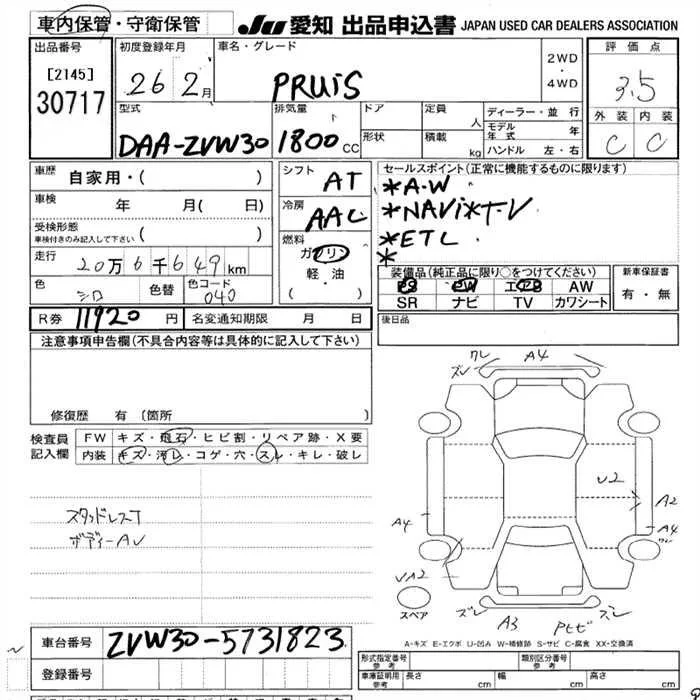 車内保管・守衛保管 JU 愛知 出品申込書 JAPAN USED CAR DEALERS ASSOCIATION
出品番号 初度登録年月 車名・グレード 2WD・4WD 評価点
[2145]
30717
26 2月 PRUIS 3.5
型式 排気量 ドア 定員 人 ディーラー・並行 外装 内装
DAA-ZVW30 1800cc 形状 積載 kg モデル年式 年 C C
ハンドル 左・右
車歴 自家用・( ) シフト AT セールスポイント(正常に機能するものに限ります)
*A-W
車検 年 月( 日) 冷房 AAC *NAVi*T-V
受検形態 車検付きのみ記入して下さい ( ) 燃料 ガソリン *ETC
*
走行 20万6千649km 軽・油 装備品(純正品に限り○をつけてください) 新車保証書
色 シロ 色替 色コード 040 ( ・ ) PS PW エアB AW 有・無
SR ナビ TV カワシート
R券 11920円 名変通知期限 月 日 後日品
注意事項申告欄(不具合内容等は具体的に記入して下さい)
修復歴 有 〔箇所 〕
検査員記入欄 FW キズ・飛石・ヒビ割・リペア跡・X要
内装 キズ・汚レ・コゲ・穴・スレ・キレ・破レ
スタッドレスT
ボディーAU
ズレ ワレ A4
U2
A2
A4 A4 ワレ
UA2
スペア ズレ A3 Pヒビ ズレ
A-キズ E-エクボ U-凹み W-補修跡 S-サビ C-腐食 XX-交換済
車台番号 ZVW30-5731823
登録番号
形式指定番号 参考 類別区分番号 参考
車庫証明用 参考 長さ cm 幅 cm 高さ cm